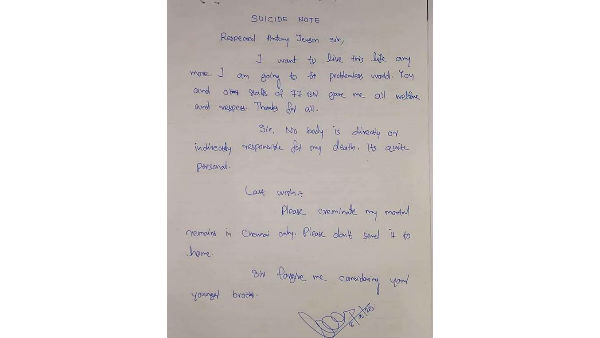 SUICIDE NOTE
Respeceed Antony Jenson Sir,
I want to live this life any
more I am going to problemless world. You
and other staffs of 77 BN gave me all welfare
and respect Thanks for all.
Sir, No body is directly or
indirectly responsible for my death. Its quite
personal.
Last wish:-
Please creminate my mortal
remains in Chennai only. Please don't send it to
home.
Sir forgive me considering your
younger brother.